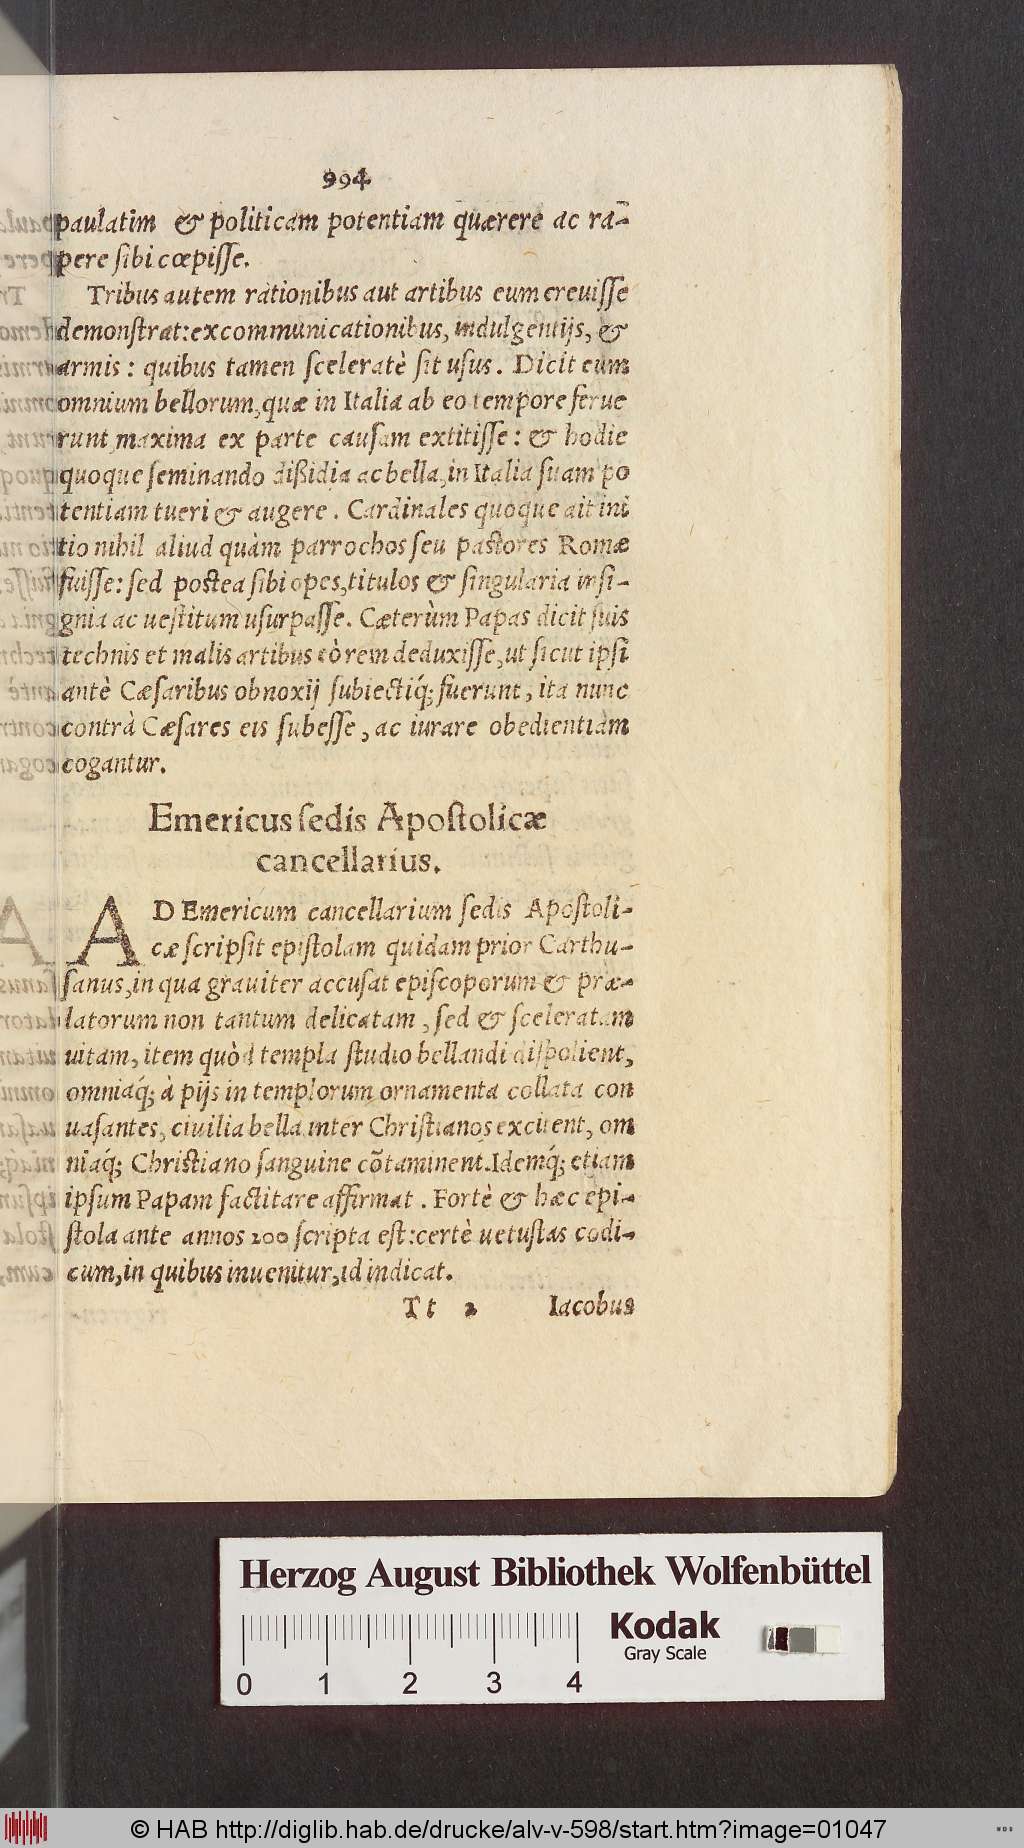 994
paulatim & politicam potentiam quærere ac ra-
pere ſibi cœpiſſe.
Tribus autem rationibus aut artibus eum creuiſſe
demonſtrat: excommunicationibus, indulgentijs, &
armis: quibus tamen ſceleratè ſit uſus. Dicit eum
omnium bellorum, quæ in Italia ab eo tempore ferue
runt maxima ex parte cauſam extitiſſe: & hodie
quoque ſeminando diſſidia ac bella, in Italia ſuam po
tentiam tueri & augere. Cardinales quoque ait ini
tio nihil aliud quàm parrochos ſeu paſtores Romæ
fuiſſe: ſed poſtea ſibi opes, titulos & ſingularia inſi-
gnia ac ueſtitum uſurpaſſe. Cæterùm Papas dicit ſuis
technis et malis artibus eò rem deduxiſſe, ut ſicut ipſi
antè Cæſaribus obnoxij ſubiectiq́; fuerunt, ita nunc
contrà Cæſares eis ſubeſſe, ac iurare obedientiam
cogantur.
Emericus ſedis Apoſtolicæ
cancellarius.
AD Emericum cancellarium ſedis Apoſtoli-
cæ ſcripſit epiſtolam quidam prior Carthu-
ſanus, in qua grauiter accuſat epiſcoporum & præ-
latorum non tantum delicatam, ſed & ſceleratam
uitam, item quòd templa ſtudio bellandi diſpolient,
omniaq́; à pijs in templorum ornamenta collata con
uaſantes, ciuilia bella inter Chriſtianos excitent, om
niaq́; Chriſtiano ſanguine cõtaminent. Idemq́; etiam
ipſum Papam factitare affirmat. Fortè & hæc epi-
ſtola ante annos 200 ſcripta eſt: certè uetuſtas codi-
cum, in quibus inuenitur, id indicat.
Tt 2 Iacobus
Herzog August Bibliothek Wolfenbüttel
Kodak
Gray Scale
0 1 2 3 4
© HAB http://diglib.hab.de/drucke/alv-v-598/start.htm?image=01047